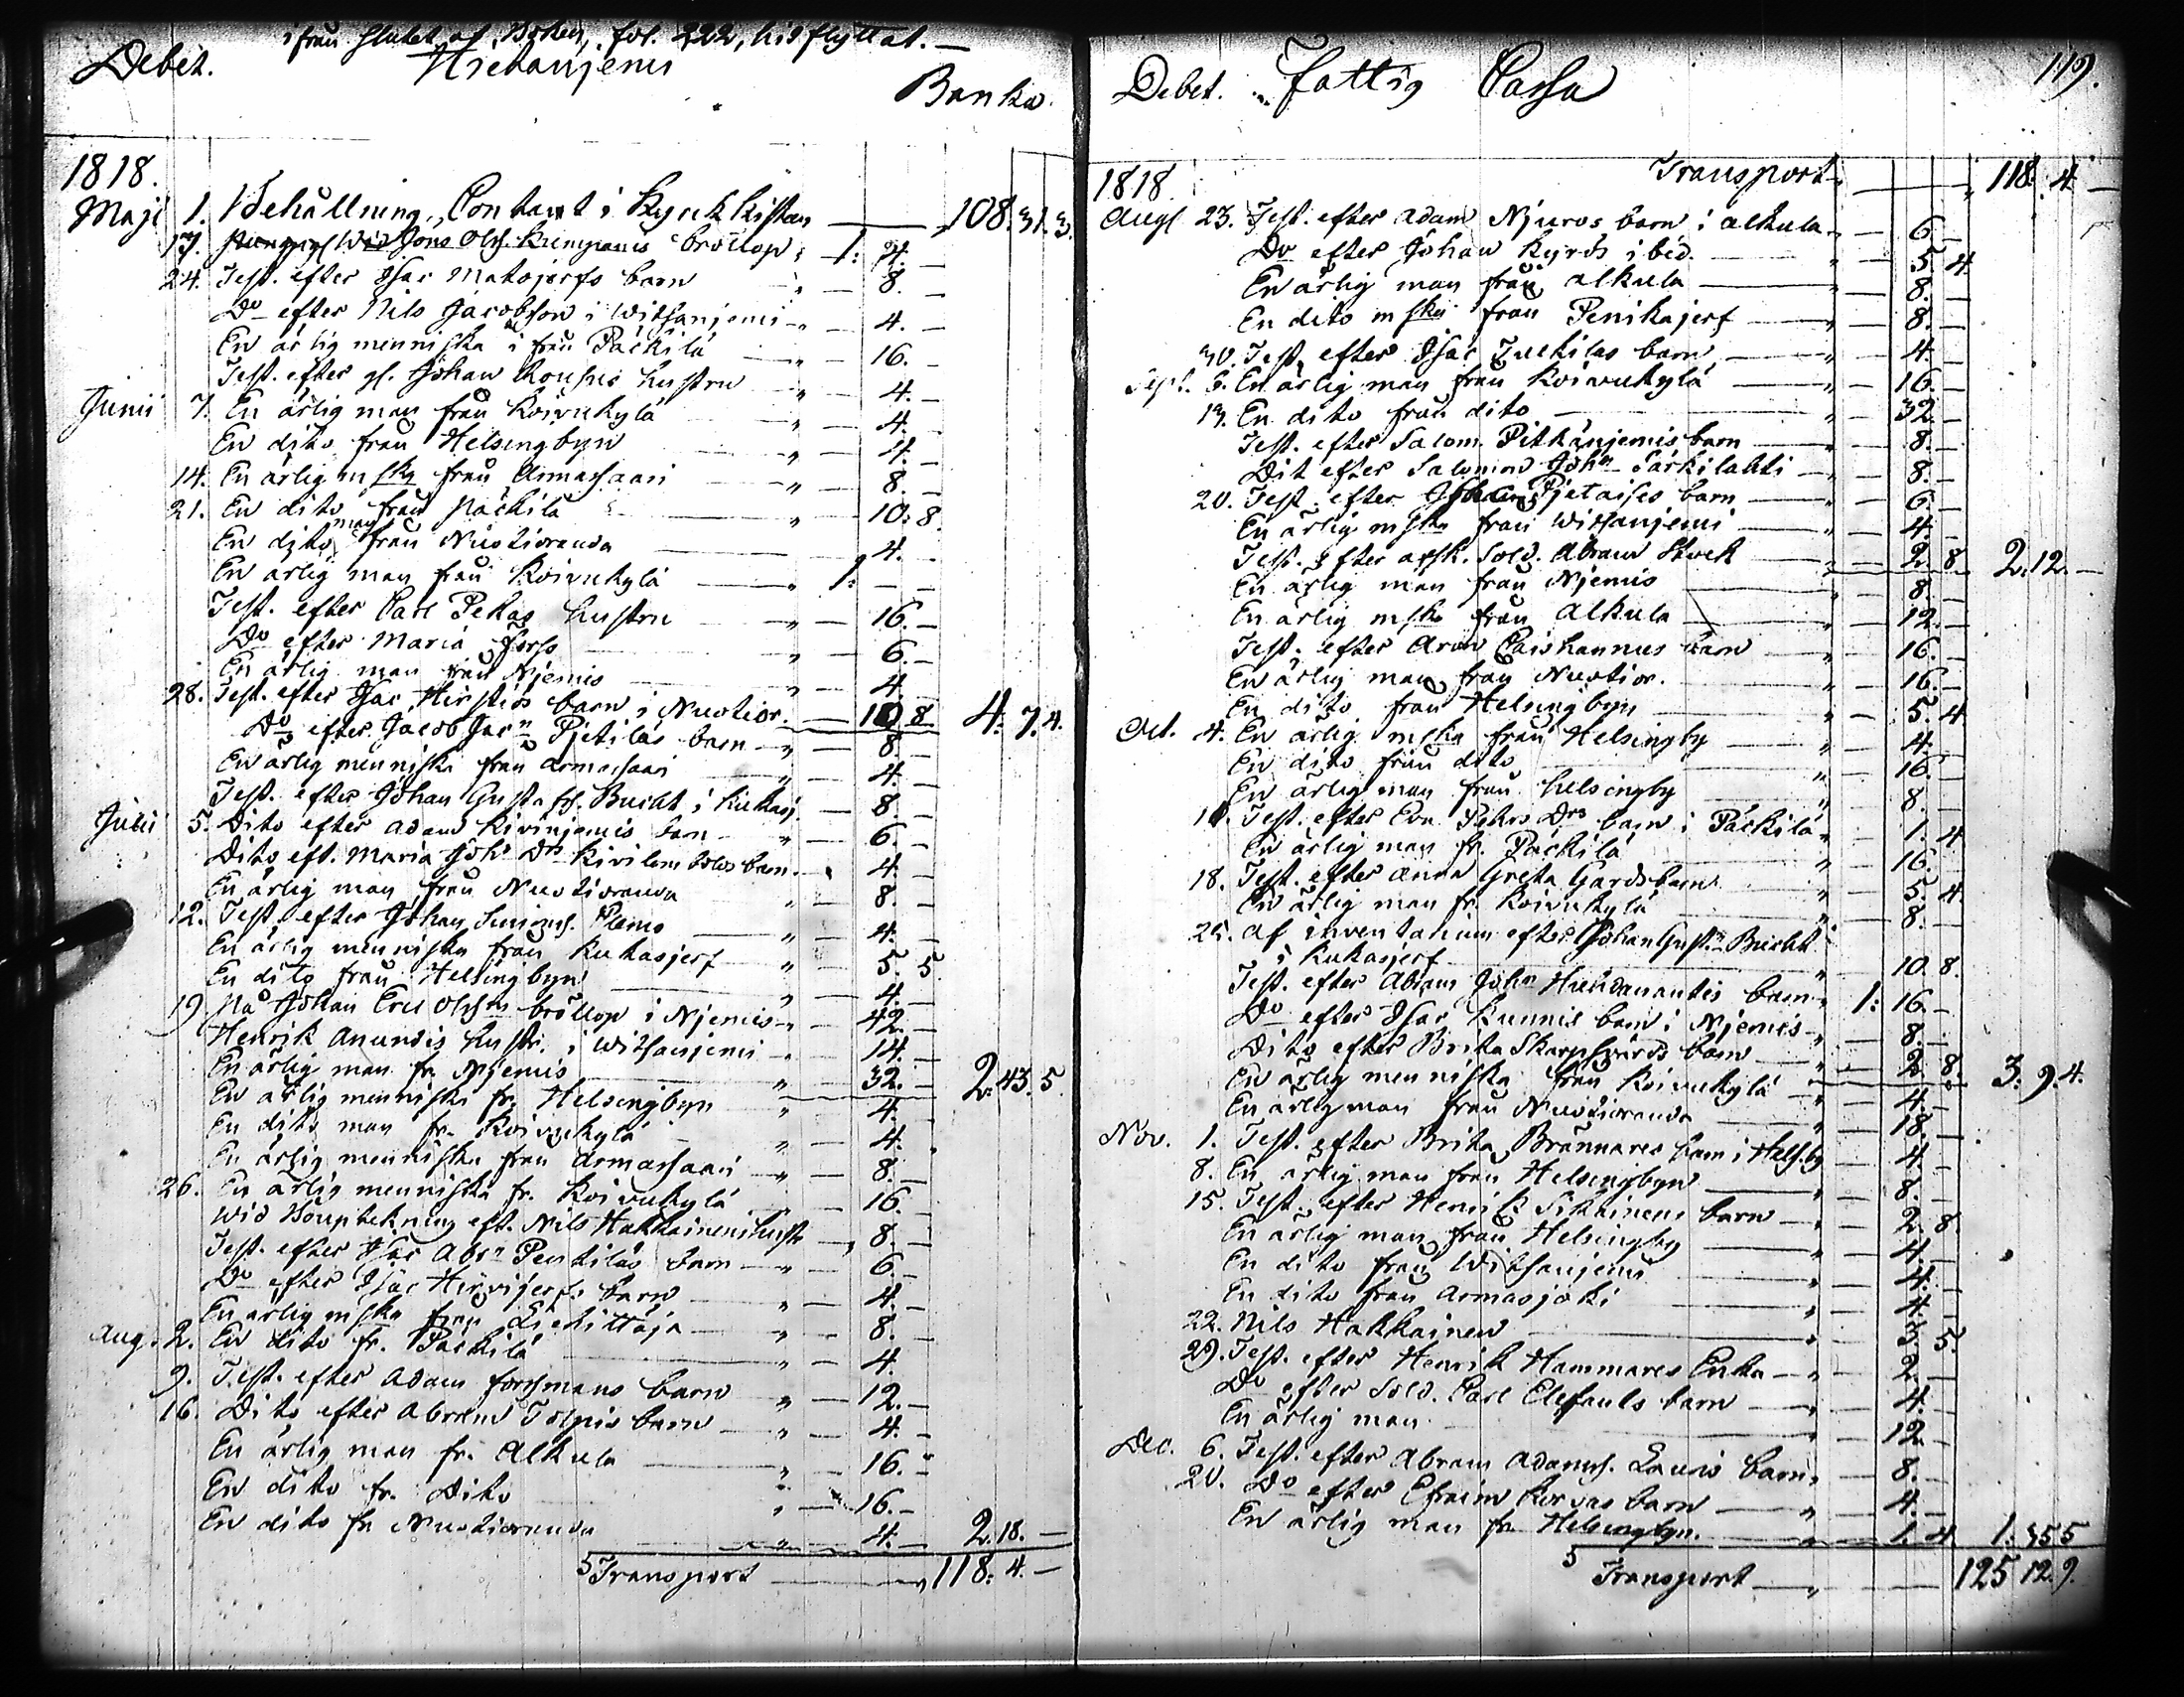 ifrån slutet af Boken, fol. 222, hid flyttat. —
Debet. Hietaniemi
Banko.
1818.
Maji 1. Behållning, Contant i Kyrckkistan — 108. 31. 3.
17. Wid Jöns Ols. Kumpanis bröllop 1: 4. —
24. Test. efter Isac Matojerfs barn — 8. —
Do efter Nils Jacobson i Witsanjemi — 4. —
En ärlig menniska ifrån Päckilä — 16. —
Test. efter gl. Johan hustru — 4. —
Junii 7. En ärlig man från Koivukylä — 4. —
En dito från Helsingbyn — 4. —
14. En ärlig mska från Armassaari — 8. —
21. En dito från Päckilä — 10: 8.
En dito man från Nuotioranda — 4. —
En ärlig man från Koivukylä — 1: — —
Test. efter Carl Pekas hustru — 16. —
Do efter Maria Forss — 6. —
En ärlig man från Njemis — 4. —
28. Test. efter Isac Hirstiös barn i Nuotior. — 10 8 4. 7. 4.
Do efter Jacob Jacn Pjetiläs barn — 8. —
En ärlig menniska från Armassaari — 4. —
Test. efter Johan Gustafss. Bucht i Kukasj. — 8. —
Julii 5. Dito efter Adam Kivinjemis barn — 6. —
Dito eft. Maria Johs Drs barn — 4. —
En ärlig man från Nuotioranda — 8. —
12. Test. efter Johan — 4. —
En ärlig menniska från Kukasjerf — 5. 5.
En dito från Helsingbyn — 4. —
19 På Johan Ersl Olssns bröllop i Njemis — 42. —
Henrik Anundis hustr. i Witsanjemi — 14. —
En ärlig man fr. Njemis — 32. — 2. 43. 5.
En ärlig menniska fr. Helsingbyn — 4. —
En dito man fr. Koivukylä — 4. —
En ärlig menniska från Armassaari — 8. —
26. En ärlig menniska fr. Koivukylä — 16. —
Wid Bouptekning eft. Nils Hakkainens hustr — 8. —
Test. efter Isac Absn Pentiläs barn — 6. —
Do efter Isac Hirvijerfs barn — 4. —
En ärlig mska från Liekittäjä — 8. —
Aug. 2. En dito fr. Päckilä — 4. —
9. Test. efter Adam Forsmans barn — 12. —
16. Dito efter Abram Tolpis barn — 4. —
En ärlig man fr. Alkula — 16. —
En dito fr. Dito — 16. —
En dito fr Nuotioranda — 4. — 2. 18. —
Transport — 118: 4. —
Debet. Fattig Cassa 119.
1818. Transport — 118. 4. —
Augl 23. Test. efter Adam Njuros barn i Alkula — 6. —
Do efter Johan Kyrös ibid. — 5. 4.
En ärlig man från Alkula — 8. —
En dito mska från Penikajerf — 8. —
30. Test. efter Isac Juckilas barn — 4. —
Sept. 6. En ärlig man från Koivukylä — 16. —
13. En dito från dito — 32. —
Test. efter Salom. Pitkänjemis barn — 8. —
Dit efter Salomon John Särkilahti — 8. —
20. Test. efter Johan Pjetaises barn — 6. —
En ärlig mska från Witsanjemi — 4. —
Test. efter afsk. Sold. Abram — 2. 8. 2. 12. —
En ärlig man från Njemis — 8. —
En ärlig mska från Alkula — 12. —
Test. efter Aron barn — 16. —
En ärlig man från Nuotior. — 16. —
En dito från Helsingbyn — 5. 4
Oct. 4. En ärlig mska från Helsingby — 4. —
En dito från dito — 16. —
En ärlig man från Helsingby — 8. —
11. Test. efter Eva Pehrs Drs barn i Päckilä — 1. 4
En ärlig man fr. Päckilä — 16. —
18. Test. efter Anna Greta Gards barn — 5. 4.
En ärlig man fr. Koivukylä — 8. —
25. Af inventarium efter Johan Gustn Bucht
i Kukasjerf — 10. 8.
Test. efter Abram John Hiedanantis barn 1: 16. —
Do efter Isac Kunnis barn i Njemis — 8. —
Dito efter Brita Skarpsvärds barn — 2. 8.
En ärlig menniska från Koivukylä — 4. — 3. 9. 4.
En ärlig man från Nuotioranda — 18. —
Nov. 1. Test. efter Brita Brännares barn i Hels.by — 4. —
8. En ärlig man från Helsingbyn — 8. —
15. Test. efter Henrik Sikainens barn — 2. 8.
En ärlig man från Helsingby — 4. —
En dito från Witsanjemi — 4. —
En dito från Armasjoki — 4. —
22. Nils Hakkainen — 3. 5.
29. Test. efter Henrik Hammares Enka — 2. —
Do efter Sold. Carl Elefants barn — 4. —
En ärlig man — 12. —
Dec. 6. Test. efter Abram Adams. Lauris barn — 8. —
20. Do efter Efraim Korvas barn — 4. —
En ärlig man fr Helsingbyn. — 1. 4 1: 35 5
Transport — 125 12. 9.